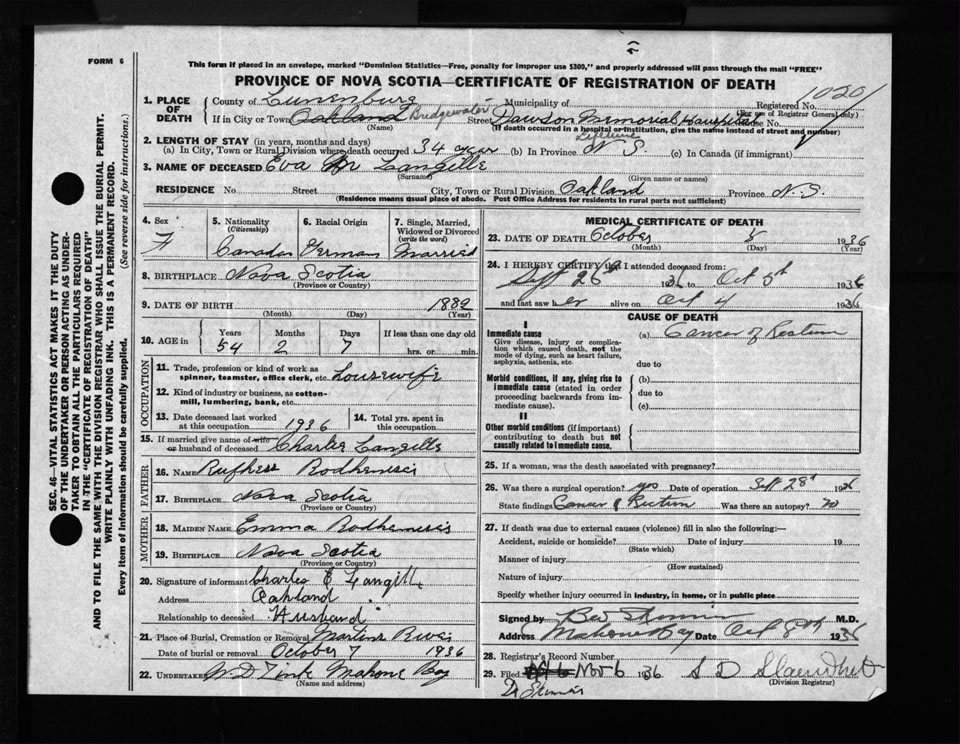 FORM 6
This form if placed in an envelope, marked "Dominion Statistics—Free, penalty for improper use $300," and properly addressed will pass through the mail "FREE"
PROVINCE OF NOVA SCOTIA—CERTIFICATE OF REGISTRATION OF DEATH
SEC. 46—VITAL STATISTICS ACT MAKES IT THE DUTY
OF THE UNDERTAKER OR PERSON ACTING AS UNDER-
TAKER TO OBTAIN ALL THE PARTICULARS REQUIRED
IN THE "CERTIFICATE OF REGISTRATION OF DEATH"
AND TO FILE THE SAME WITH THE DIVISION REGISTRAR WHO SHALL ISSUE THE BURIAL PERMIT.
WRITE PLAINLY WITH UNFADING INK. THIS IS A PERMANENT RECORD.
Every item of information should be carefully supplied. (See reverse side for instructions.)
1. PLACE OF DEATH County of Lunenburg Municipality of Registered No. 1020
(For use of Registrar General only)
If in City or Town Oakland Bridgewater Street Dawson Memorial Hospital House No.
(Name) (If death occurred in a hospital or institution, give the name instead of street and number)
2. LENGTH OF STAY (in years, months and days)
(a) In City, Town or Rural Division where death occurred 34 years (b) In Province Lifetime N S. (c) In Canada (if immigrant)
3. NAME OF DECEASED Eva Langille
(Surname) (Given name or names)
RESIDENCE No Street City, Town or Rural Division Oakland Province N.S.
(Residence means usual place of abode. Post Office Address for residents in rural parts not sufficient)
4. Sex F
5. Nationality (Citizenship) Canadan
6. Racial Origin German
7. Single, Married, Widowed or Divorced (write the word) Married
8. BIRTHPLACE Nova Scotia
(Province or Country)
9. DATE OF BIRTH 1882
(Month) (Day) (Year)
10. AGE in Years 54 Months 2 Days 7 If less than one day old hrs. or min.
OCCUPATION
11. Trade, profession or kind of work as spinner, teamster, office clerk, etc. housewife
12. Kind of industry or business, as cotton-mill, lumbering, bank, etc.
13. Date deceased last worked at this occupation 1936
14. Total yrs. spent in this occupation
15. If married give name of wife or husband of deceased Charles Langille
FATHER
16. NAME Rufhess Bodhenier
17. BIRTHPLACE Nova Scotia
(Province or Country)
MOTHER
18. MAIDEN NAME Emma
19. BIRTHPLACE Nova Scotia
(Province or Country)
20. Signature of informant Charles E Langille
Address Oakland
Relationship to deceased Husband
21. Place of Burial, Cremation or Removal Martins River
Date of burial or removal October 7 1936
22. UNDERTAKER W. D. Zink Mahone Bay
(Name and address)
MEDICAL CERTIFICATE OF DEATH
23. DATE OF DEATH October 5 1936
(Month) (Day) (Year)
24. I HEREBY CERTIFY that I attended deceased from:
Sept 26th 1936 to Oct 5th 1936
and last saw her alive on Oct 4 1936
CAUSE OF DEATH
I
Immediate cause
Give disease, injury or complication which caused death, not the mode of dying, such as heart failure, asphyxia, asthenia, etc.
(a) Cancer of Rectum
due to
Morbid conditions, if any, giving rise to immediate cause (stated in order proceeding backwards from immediate cause).
(b)
due to
(c)
II
Other morbid conditions (if important) contributing to death but not causally related to immediate cause.
25. If a woman, was the death associated with pregnancy?
26. Was there a surgical operation? yes Date of operation Sept 28th 1936
State findings Cancer of Rectum Was there an autopsy? no
27. If death was due to external causes (violence) fill in also the following:—
Accident, suicide or homicide? Date of injury 19
(State which)
Manner of injury
(How sustained)
Nature of injury
Specify whether injury occurred in industry, in home, or in public place
Signed by M.D.
Address Mahone Bay Date Oct 8th 1936
28. Registrar's Record Number
29. Filed Nov 6 1936 S D
(Division Registrar)